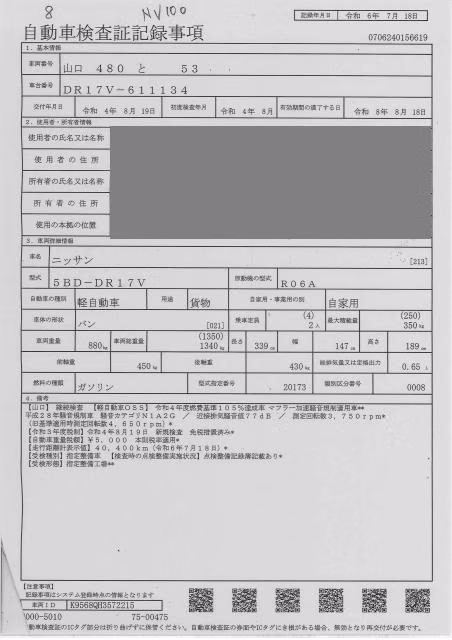 8
NV100
記録年月日 令和 6年 7月 18日
自動車検査証記録事項
0706240156619
1. 基本情報
車両番号 山口 480 と 53
車台番号 DR17V-611134
交付年月日 令和 4年 8月 19日 初度検査年月 令和 4年 8月 有効期間の満了する日 令和 8年 8月 18日
2. 使用者・所有者情報
使用者の氏名又は名称
使用者の住所
所有者の氏名又は名称
所有者の住所
使用の本拠の位置
3. 車両詳細情報
車名 ニッサン [213]
型式 5BD-DR17V 原動機の型式 R06A
自動車の種別 軽自動車 用途 貨物 自家用・事業用の別 自家用
車体の形状 バン [021] 乗車定員 (4) 2人 最大積載量 (250) 350kg
車両重量 880kg 車両総重量 (1350) 1340kg 長さ 339cm 幅 147cm 高さ 189cm
前軸重 450kg 後軸重 430kg 総排気量又は定格出力 0.65L
燃料の種類 ガソリン 型式指定番号 20173 類別区分番号 0008
4. 備考
【山口】 継続検査 【軽自動車OSS】 令和4年度燃費基準105%達成車 マフラー加速騒音規制適用車**
平成28年騒音規制車 騒音カテゴリN1A2G / 近接排気騒音値77dB / 測定回転数3,750rpm*
(旧基準適用時測定回転数4,650rpm)*
【令和3年度税制】令和4年8月19日 新規検査 免税措置済み*
【自動車重量税額】¥5,000 本則税率適用*
【走行距離計表示値】40,400km(令和6年7月18日)*
【受検種別】指定整備車 【検査時の点検整備実施状況】点検整備記録簿記載あり*
【受検形態】指定整備工場**
【注意事項】
記録事項はシステム登録時点の情報となります
車両ID K9568QH3572215
000-5010 75-00475
動車検査証のICタグ部分は折り曲げずに保管ください。自動車検査証の券面やICタグに含損がある場合、無効となり再交付が必要です。